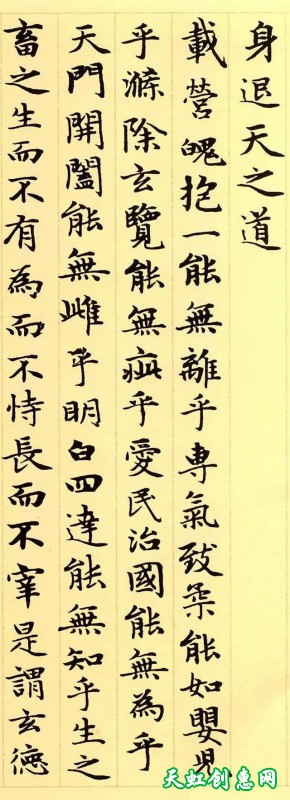 身退天之道
載營魄抱一能無離乎専氣致柔能如嬰児
乎滌除玄覽能無疵乎愛民治國能無為乎
天門開闔能無雌乎明白四達能無知乎生之
畜之生而不有為而不恃長而不宰是謂玄德
天虹创惠网